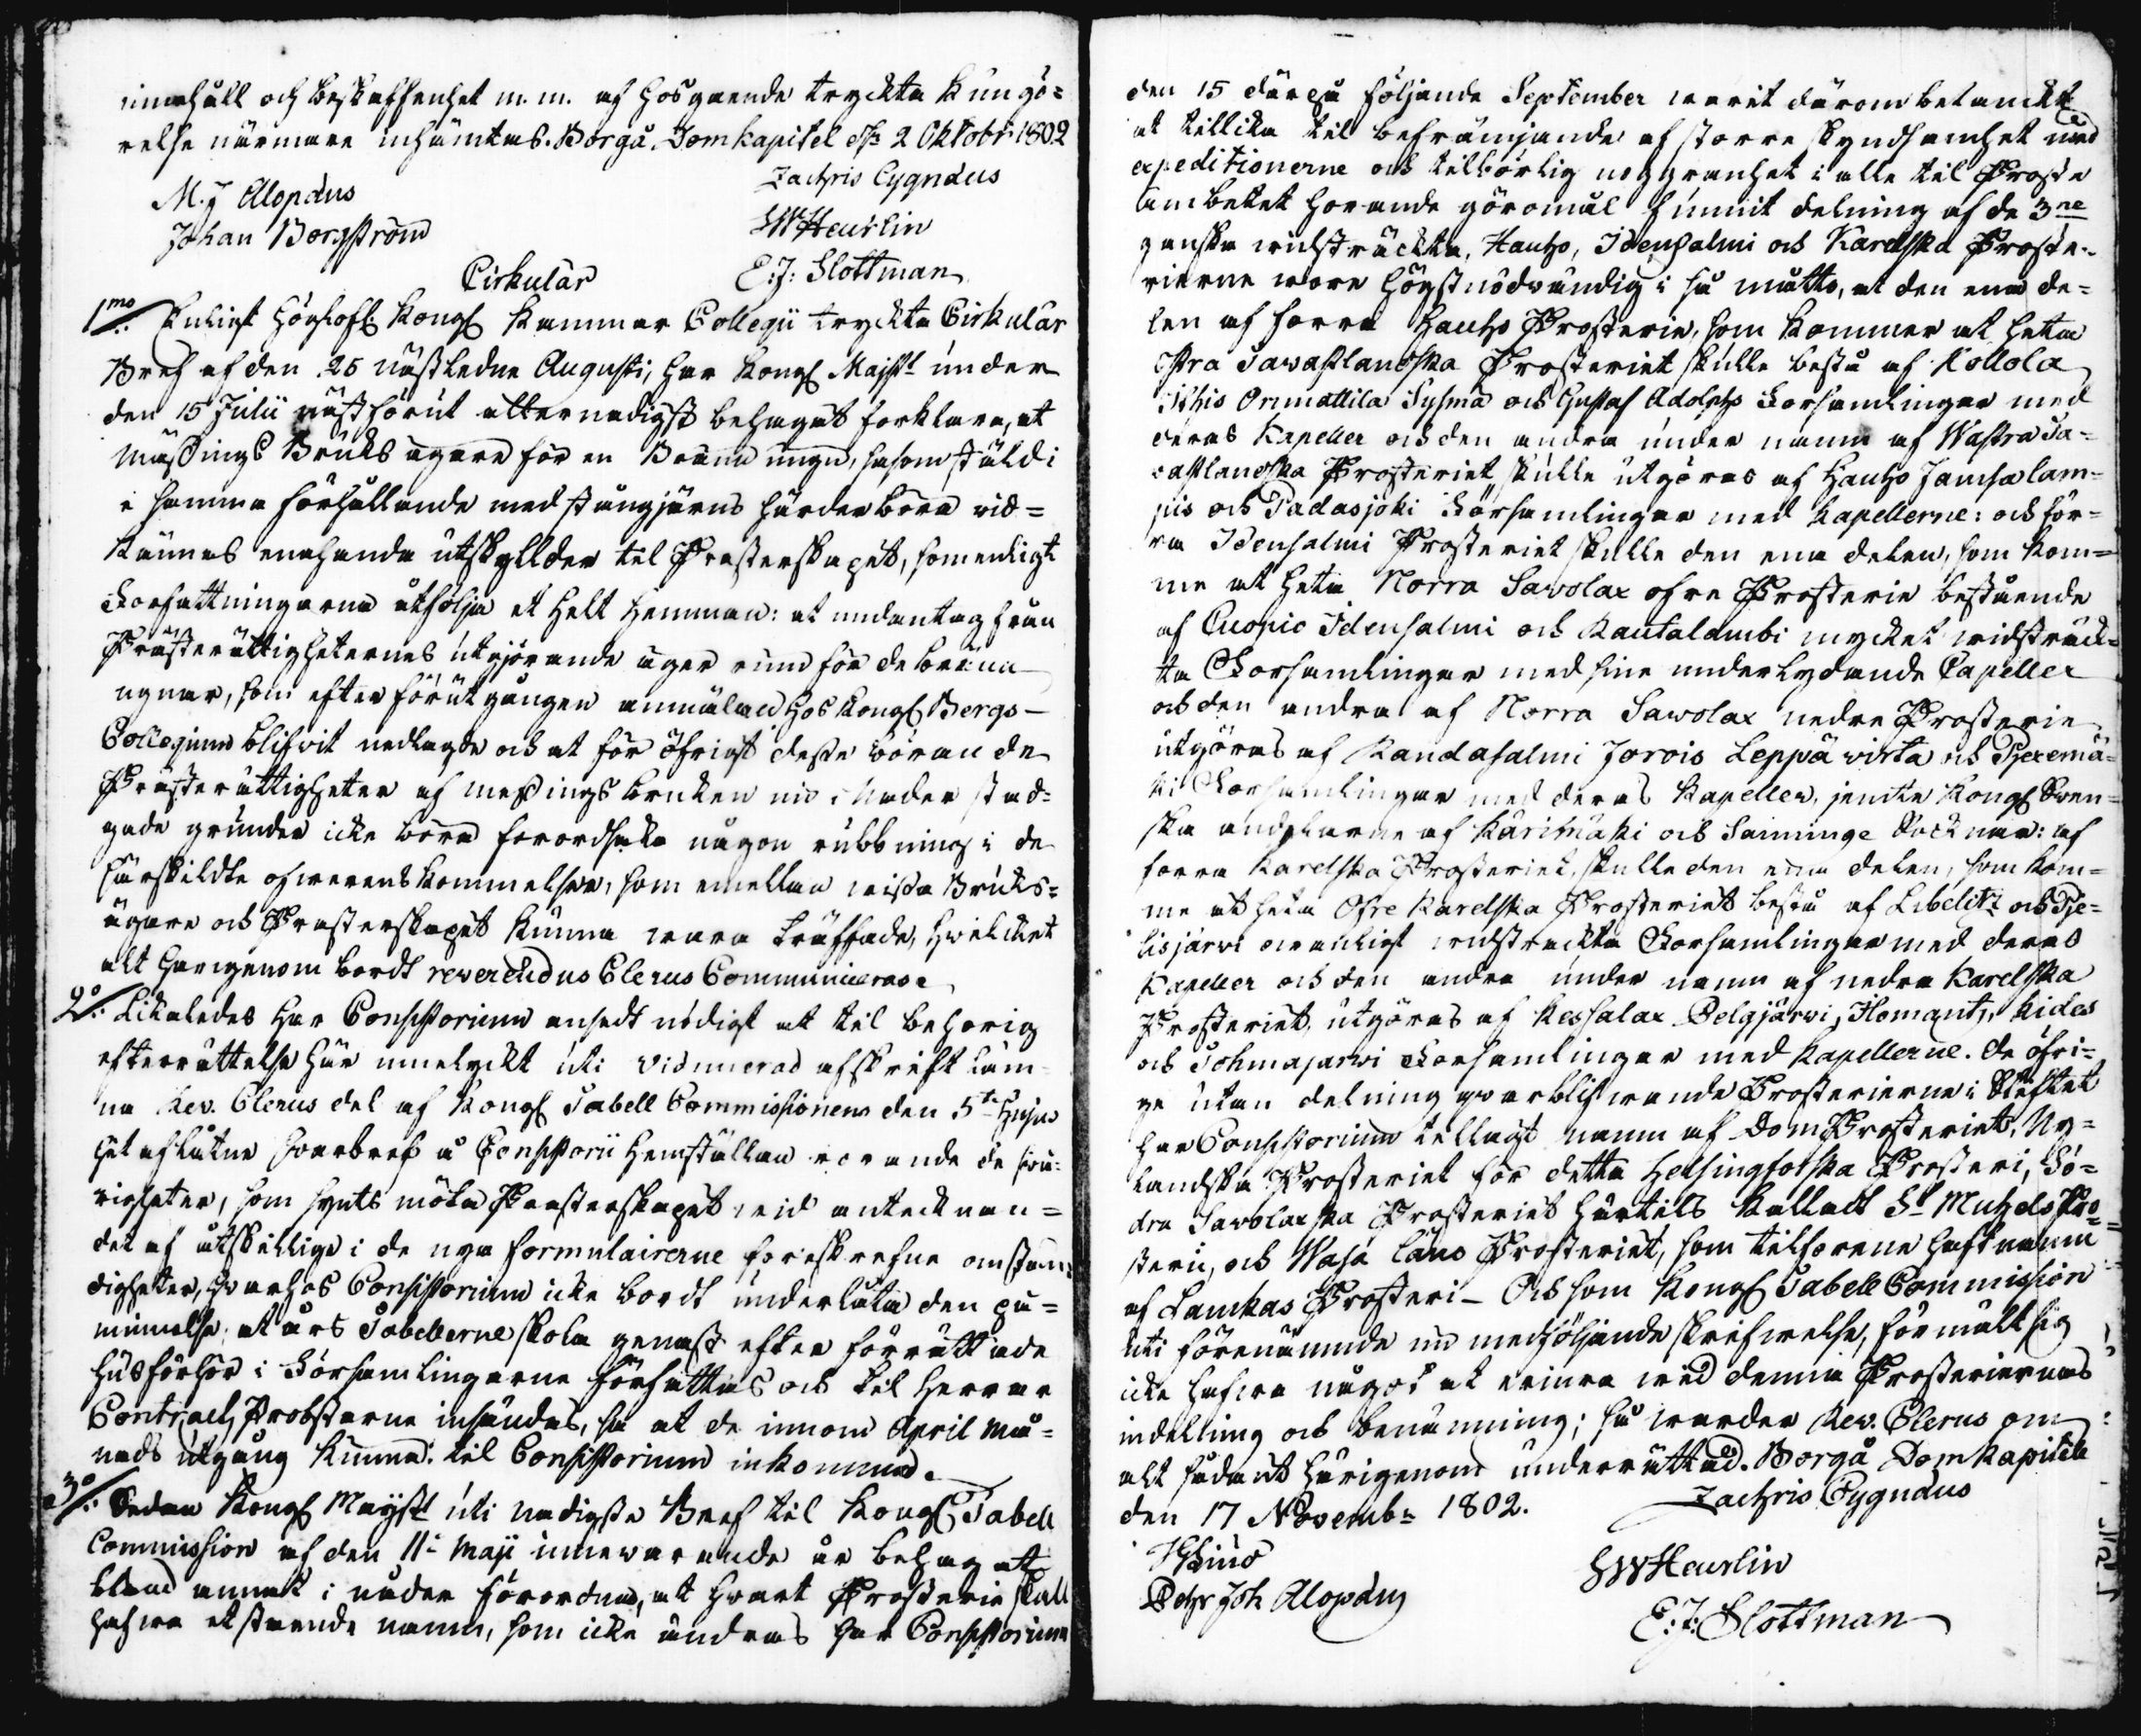 innehåll och beskaffenhet m. m. af hosgaende tryckta kungö=
relse närmare inhämtas. Borgå Domkapitel d. 2 Oktobr 1802
M. J. Alopæus Zachris Cygnæus
Johan Borgström GWHeurlin
E: J: Slottman
Cirkulär
1mo Enligt Höglofl. Kongl Kammar Collegii tryckta Cirkulär
Bref af den 25 nästledne Augusti, har Kongl Majst under
den 15 Julii näst förut allernadigst behagat forklara, at
Mässings Bruks ägare för en Bränn ungn, såsom stäld i
i samma förhållande med stångjärns härdar böra vid=
kännas enahanda utskyllder til Prasterskapet, som enligt
Forfattningarna åtfölja et helt Hemman: at undantag från
Prästerättigheternes utgjörande äger rum för de bränn
ugnar, som efter förutgången anmälan hos Kongl Bergs-
Collegium blifvit nedlagde och at för öfrigt desse börande
Prästerättigheter af messings bruken nu i Nåder stad=
gade grunder icke böra forordsaka någon rubbning i de
särskildte ofwerenskommelser, som emellan wissa Bruks=
ägare och Prasterskapet kunna wara träffade, hwilcket
alt harigenom bordt reverendus Clerus Communiceras.
2o: Likaledes har Consistorium ansedt nödigt at til behorig
efterrättelse här innelyckt uti vidimerad afskrift läm-
na Rev. Clerus del af Kongl Tabell Commissionens den 5te hujus
hit aflåtne swarbref å Consistorii Hemställan rorande de swå=
righeter, som synts möta Prasterskapet, wid antecknan=
det af åtskillige i de nya formulairerne foreskrefne omstän=
digheter, hwarhos Consistorium icke bordt underlåta den på=
minnelse, at års Tabellerne skola genast efter förrättade
husförhör i Församlingarne författas och til Herrar
Contracts Probstarne insändas, så at de innom April må=
nads utgång kunna til Consistorium inkomma.
3o: Sedan Kongl Mayst uti nadigste Bref til Kongl Tabell
Commission af den 11te Maji innewarande år behagat
bland annat i nåder förordna, at hwart Prosterie skall
hafwa et staende namn, som icke ändras har Consistorium
den 15 därpå följande September warit därom betänckt
at tillika til befrämjande af storre skyndsamhet med
expeditionerne och tilbörlig noggranhet i alle til Proste
ämbetet horande göromål funnit delning af de 3ne
ganska widsträckta, Hauho, Idensalmi och Karelska Proste-
rierne wore högst nödvändig i så måtto, at den ena de=
len af forra Hauho Prosterie, som kommer at heta
Östra Tawastlandska Prosteriet skulle bestå af Kollola
Ithis Orimattila Sysmä och Gustaf Adolphs Forsamlingar med
deras Kapeller och den andra under namn af Wästra Ta=
vastlandska Prosteriet skulle utgöras af Hauho Jamsæ Lam=
pis och Padasjoki Församlingar med kapellerne: och för=
ra Idensalmi Prosteriet skulle den ena delen, som kom=
me at heta Norra Sawolax ofre Prosterie bestående
af Cuopio Idensalmi och Rautalambi mycket widsträck=
ta Forsamlingar med sine underlydande Capeller
och den andra af Norra Sawolax nedre Prosterie
utgöras af Randasalmi Jorois Leppävirta och Pjexemä=
ki Forsamlingar med deras Kapeller, jemte Kongl Swen=
ska andelarne af Kärimäki och Sæminge Socknar: af
forra Karelska Prosteriet, skulle den ena delen, som kom=
me at heta Ofre Karelska Prosteriet bestå af Libelitz och Pje=
lisjärvi owanligt widsträckta Forsamlingar med deras
Kapeller och den andra under namn af nedra Karelska
Prosteriet, utgöras af Kessalax Pelgjärwi, Ilomants, Kides
och Tohmajarwi Forsamlingar med kapellerne. De öfri=
ge utan delning qwarblifwande Prosterierne i Stiftet
har Consistorium tillagt namn af DomProsteriet, Ny=
landska Prosteriet för detta Helsingforska Prosteri, Sö=
dra Sawolaxska Prosteriet härtils kalladt St Michels Pro=
sterii, och Wasa Läns Prosteriet, som tilforene haft namn
af Laukas Prosteri - Och som Kongl Tabell Commission
uti förenämnde nu medföljande skrifwelse, förmält sig
icke hafwa något at erinra wid denna Prosteriernas
indelning och benämning; så warder Rev. Clerus om
alt sådant härigenom underrättad. Borgå Domkapitel
den 17 Novembr 1802. Zachris Cygnæus
GWHeurlin
Petr Joh Alopæus
E: J: Slottman